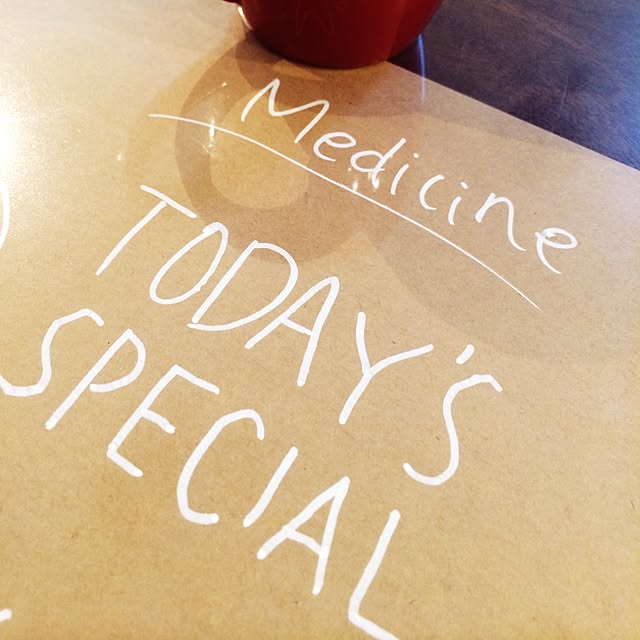 Medicine
TODAY'S
SPECIAL